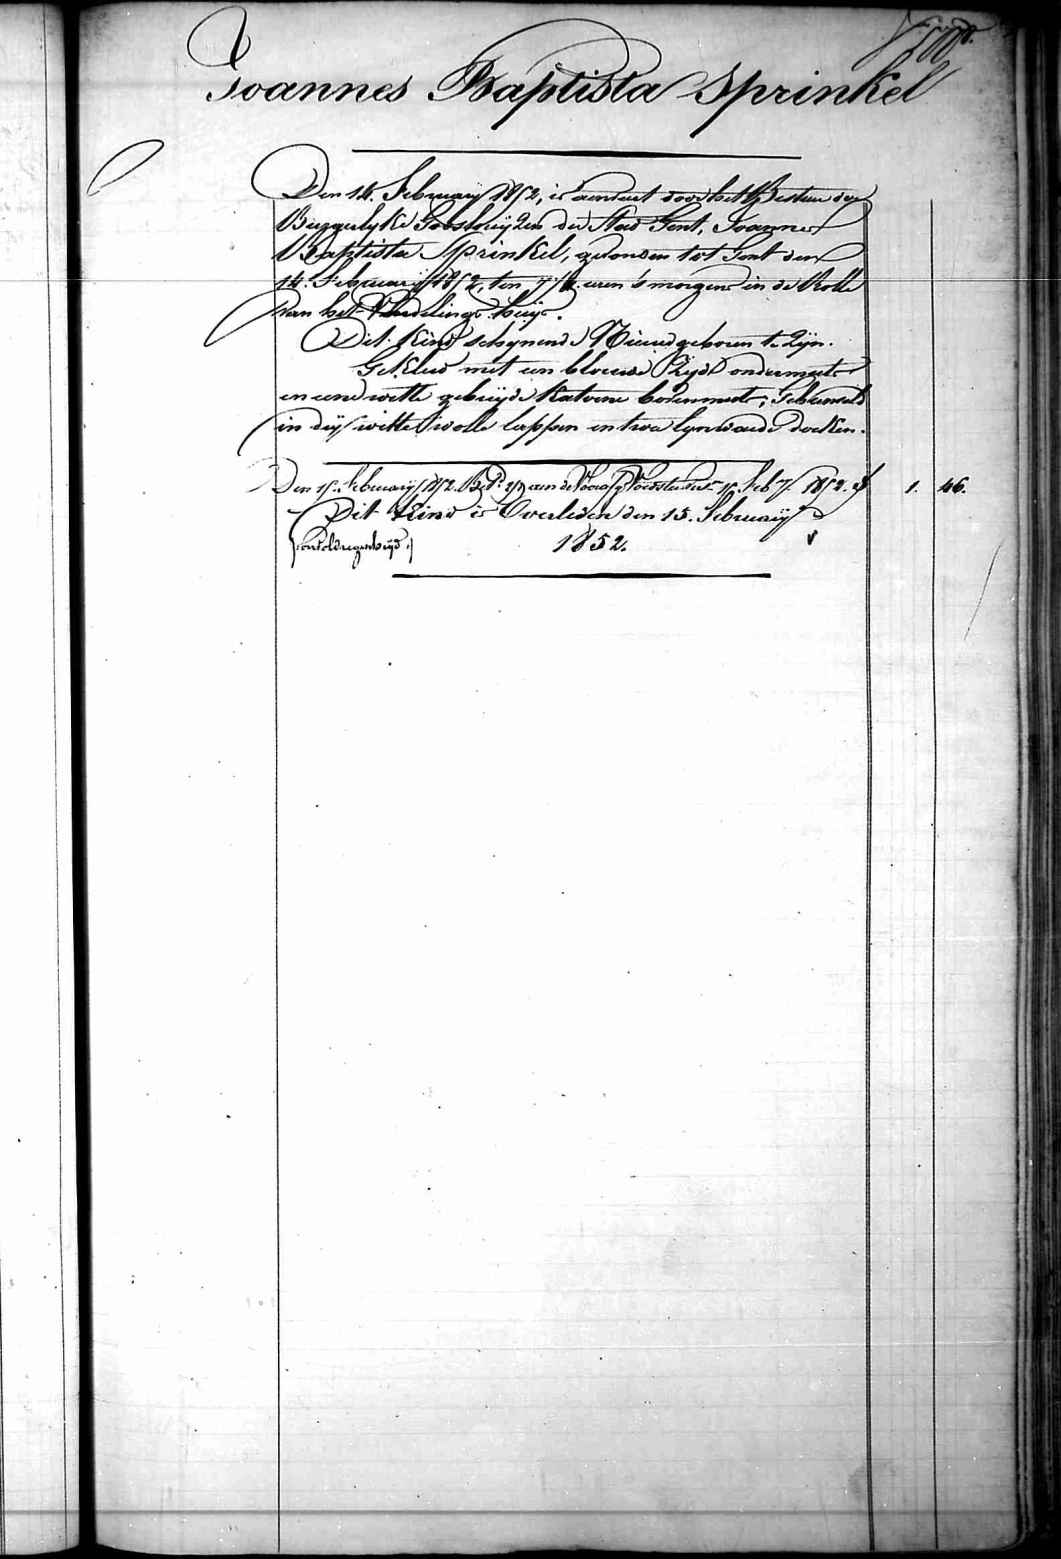 100.
Joannes Baptista Sprinkel
Den 14. February 1852, is aenveert door het Bestuer der
Burgerlyke Godshuyzen der Stad Gent, Joannes
Baptista Sprinkel, gevonden tot Gent den
14. February 1852, ten 7 1/2 uren 's morgens in de Rolle
van het Vondelings huys.
Dit Kind schynende Nieuwgeboren te Zyn.
Gekleed met een blauwe Zyde ondermuts
en eene witte gebreyde Katoene bovenmuts; Gebunseld
in dry witte wolle lappen en twee lynwaede doeken.
Den 15. February 1852. aen de 15. Feb 1852. 1. 46.
Dit Kind is Overleden den 15. February
1852.